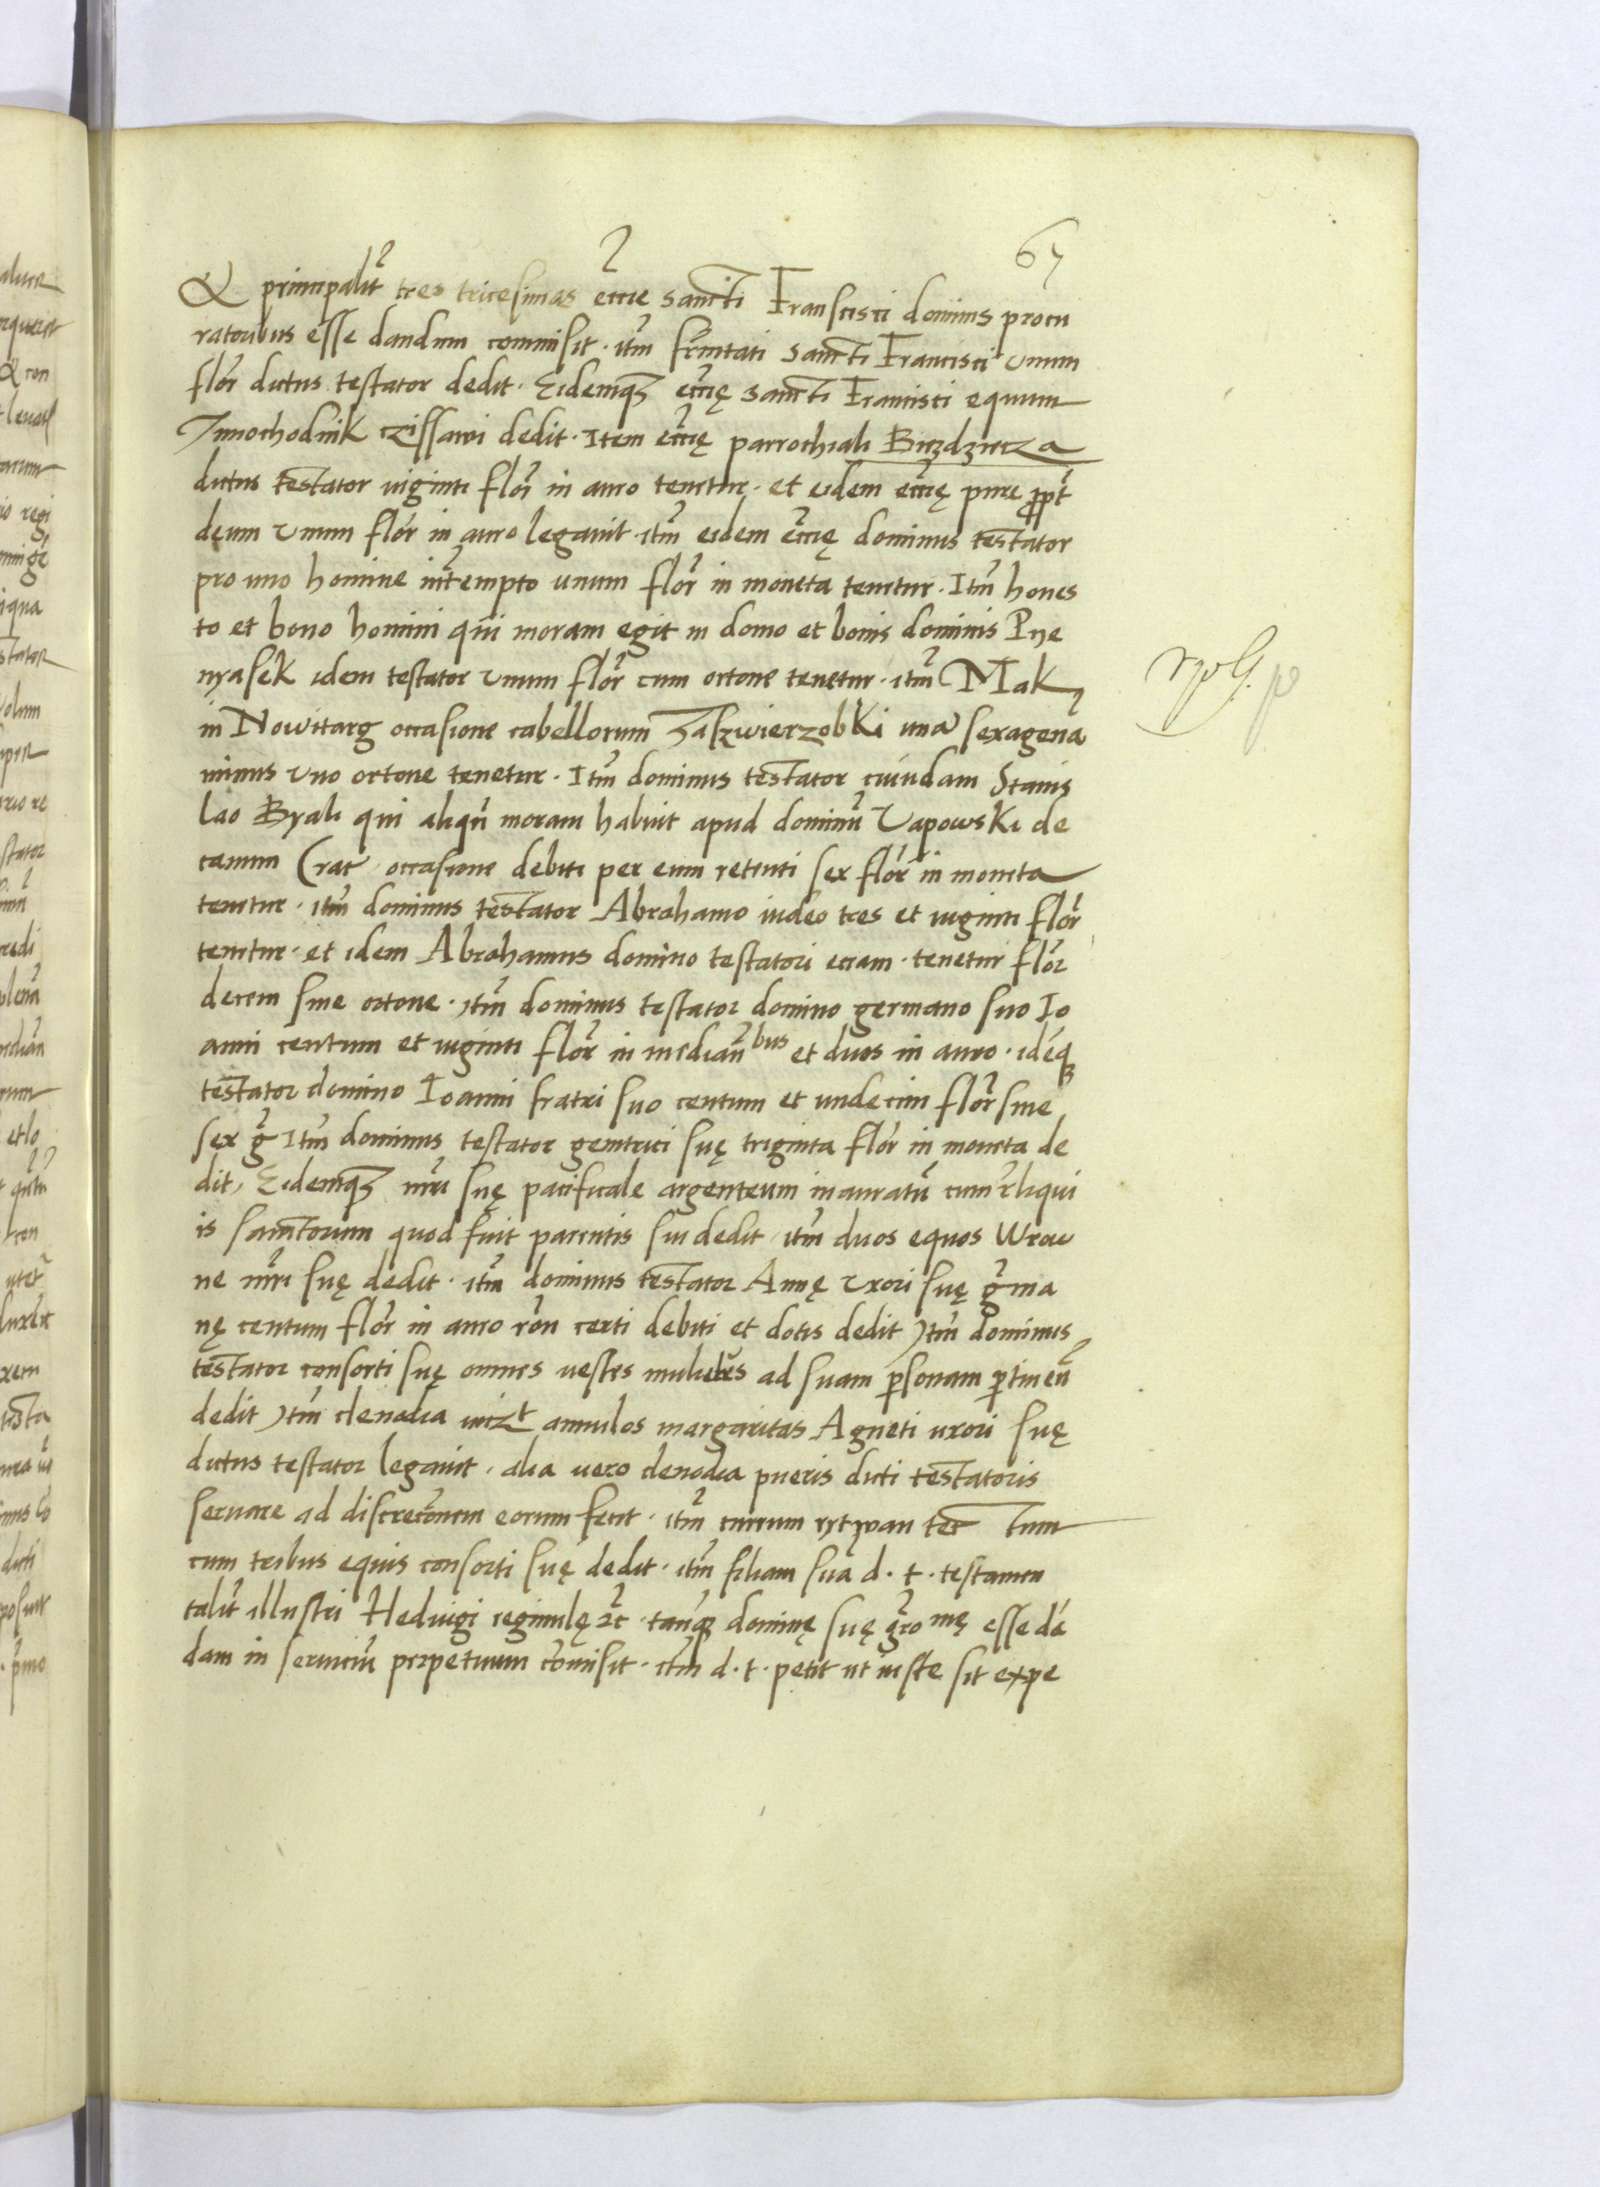 67
& principalit tres tricesimas eccie sancti Franscisci dominis procu
ratoribus esse dandum commisit · itm frnitati sancti Francisci unum
flor dictus testator dedit · Eidemq eccię sancti Francisci equum
Innochodnik czissawi dedit · Item eccię parrochiali
dictus testator viginti flor in auro tenetur · et eidem eccię pure propt
deum unum flor in auro legavit · itm eidem eccię dominus testator
pro uno homine intempto unum flor in moneta tenetur · Itm hones
to et bono homini qui moram egit in domo et bonis dominis Pye
nyasek idem testator unum flor cum ortone tenetur · itm Mak
in Nowittarg occasione cabellorum una sexagena
minus uno ortone tenetur · Itm dominus testator cuiudam Stanis
lao Byali qui aliqn moram habuit apud dominu Vapowski de
canum Crac occasione debiti per eum retenti sex flor in moneta
tenetur · itm dominus testator Abrahamo iudeo tres et viginti flor
tenetur · et idem Abrahamus domino testatori eciam · tenetur flor
decem sine ortone · itm dominus testator domino germano suo Io
anni centum et viginti flor in medianbus et duos in auro · ideq
testator domino Ioanni fratri suo centum et undecim flor sine
sex g Itm dominus testator genitrici suę triginta flor in moneta de
dit, Eidemq mri suę pacificale argenteum inauratu cum rliqui
is sanctorum quod fuit parentis sui dedit itm duos equos Wrow
ne mri suę dedit · itm dominus testator Annę uxori suę gma
nę centum flor in auro ron certi debiti et dotis dedit Itm dominus
testator consorti suę omnes vestes mulietres ad suam psonam ptinen
dedit Itm clenodia vizt annulos margaritas Agneti uxori suę
dictus testator legavit · alia vero clenodia pueris dicti testatoris
servare ad discreconem eorum fecit · itm currum rytwan tec tum
cum tribus equis consorti suę dedit · itm filiam sua d · t · testamen
talit illustri Hedvigi reginulę zc · tanq dominę suę gromę esse dá
dam in serviciu perpetuum comisit · itm d · t · petit ut iuste sit expe